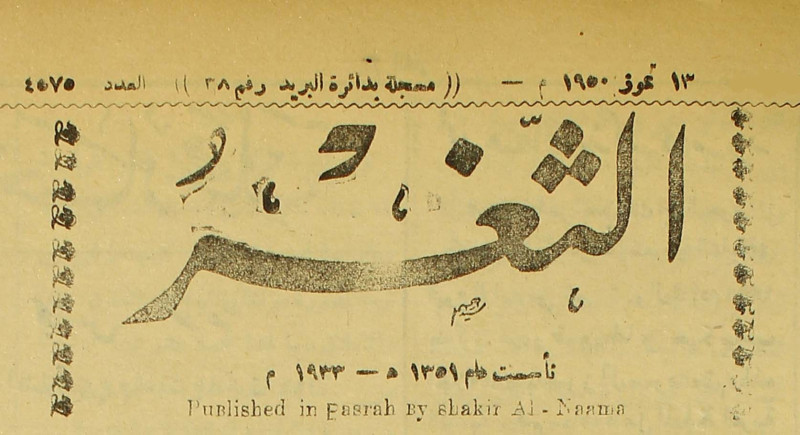 ١٣ تموز ١٩٥٠ م — (( مسجلة بدائرة البريد رقم ٣٨ )) العدد ٤٥٧٥
الثّغر
تأسست عام ١٣٥١ ه — ١٩٣٣ م
Published in Basrah By shakir Al - Naama